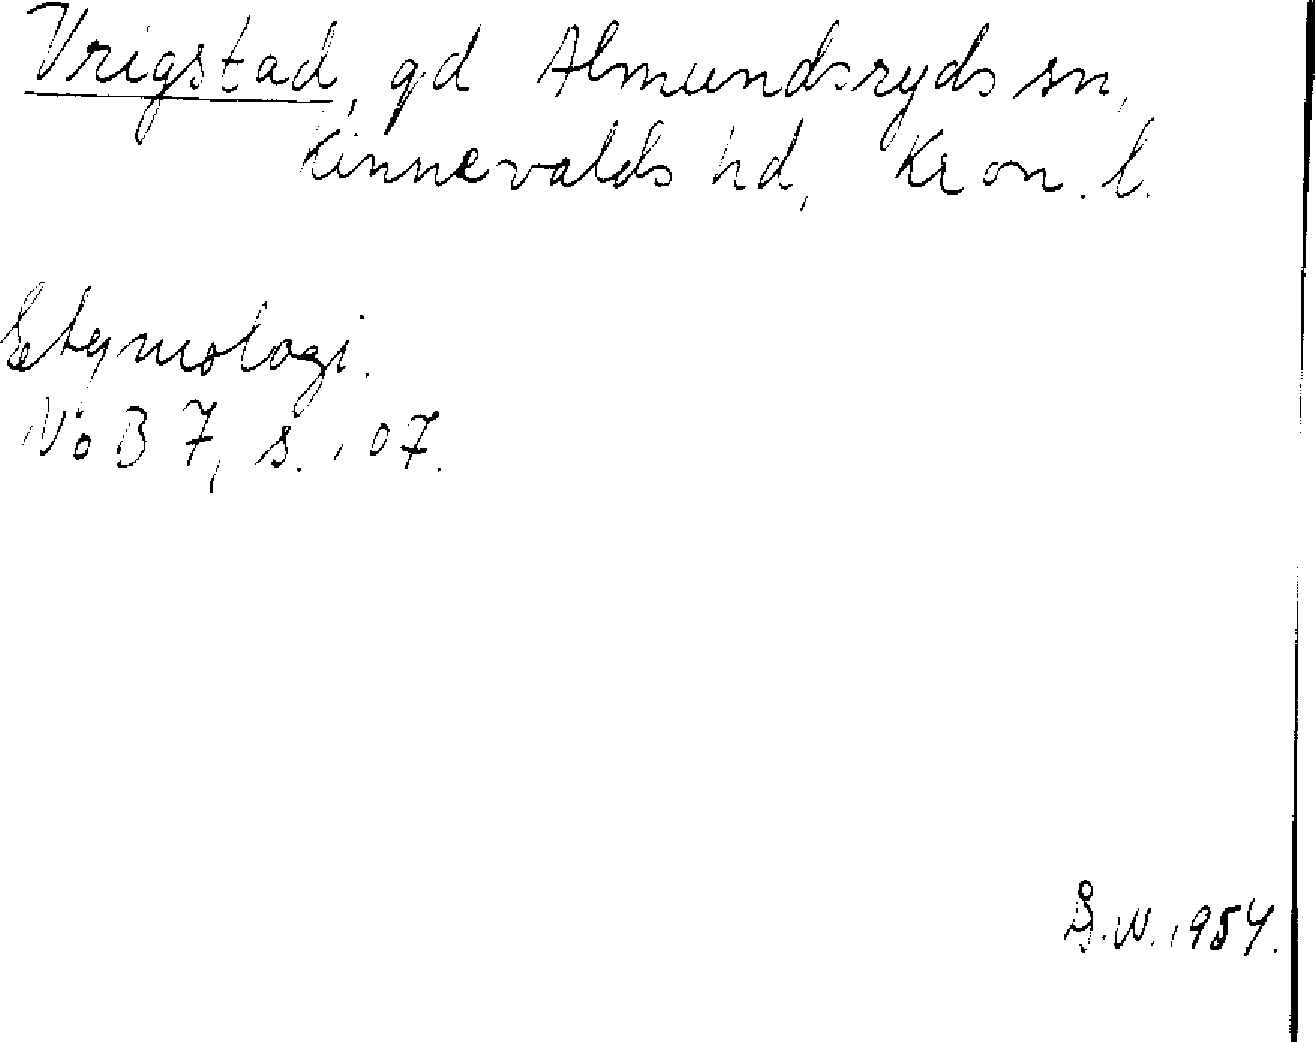 Vrigstad, gd Almundsryds sn,
Kinnevalds hd, Kron. l.
Etymologi.
NoB 7, s. 107.
Å.W. 1954.